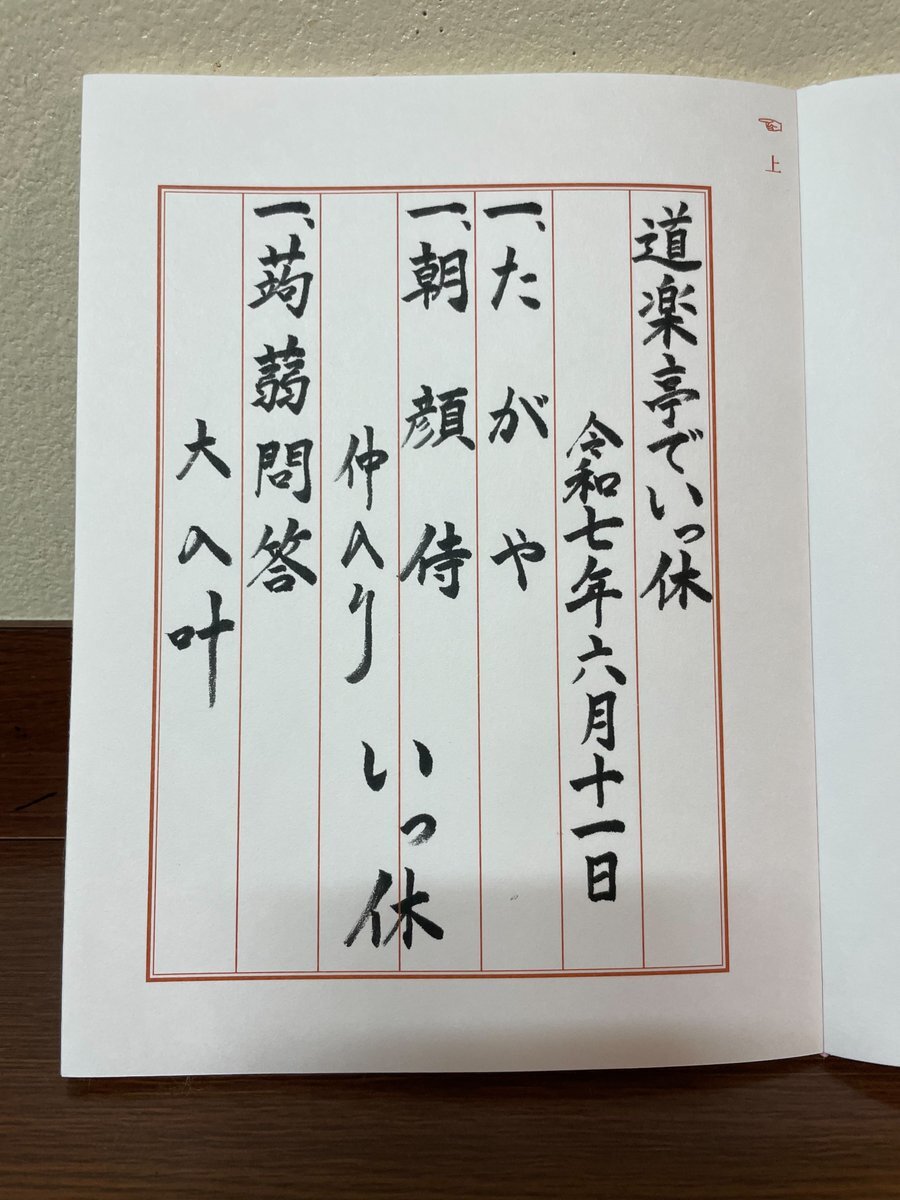 上
道楽亭でいっ休
令和七年六月十一日
一、たがや
一、朝顔侍
仲入り
いっ休
一、蒟蒻問答
大入叶